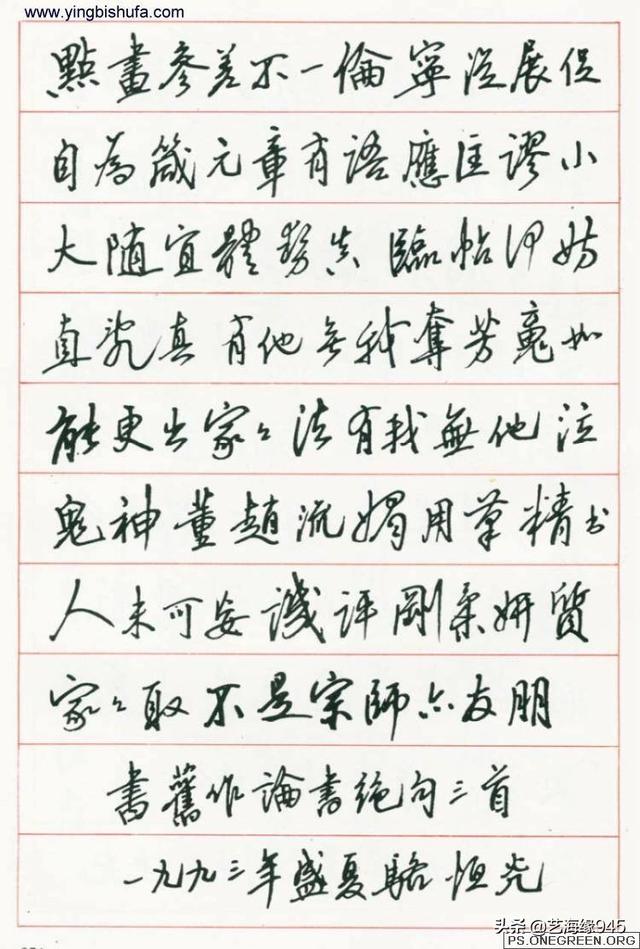 www.yingbishufa.com
點畫參差不一倫寧從展促
自為箴元章有語應匡謬小
大随宜體勢真臨帖何妨
直瓷真有他無我奪芳魂如
能更出家〻法有我無他泣
鬼神董趙流媚用筆精書
人未可妄譏評剛柔妍質
家〻取不是宗師亦友朋
書舊作論書絶句三首
一九九三年盛夏駱恒光
头条 @艺海缘945
PS.ONEGREEN.ORG